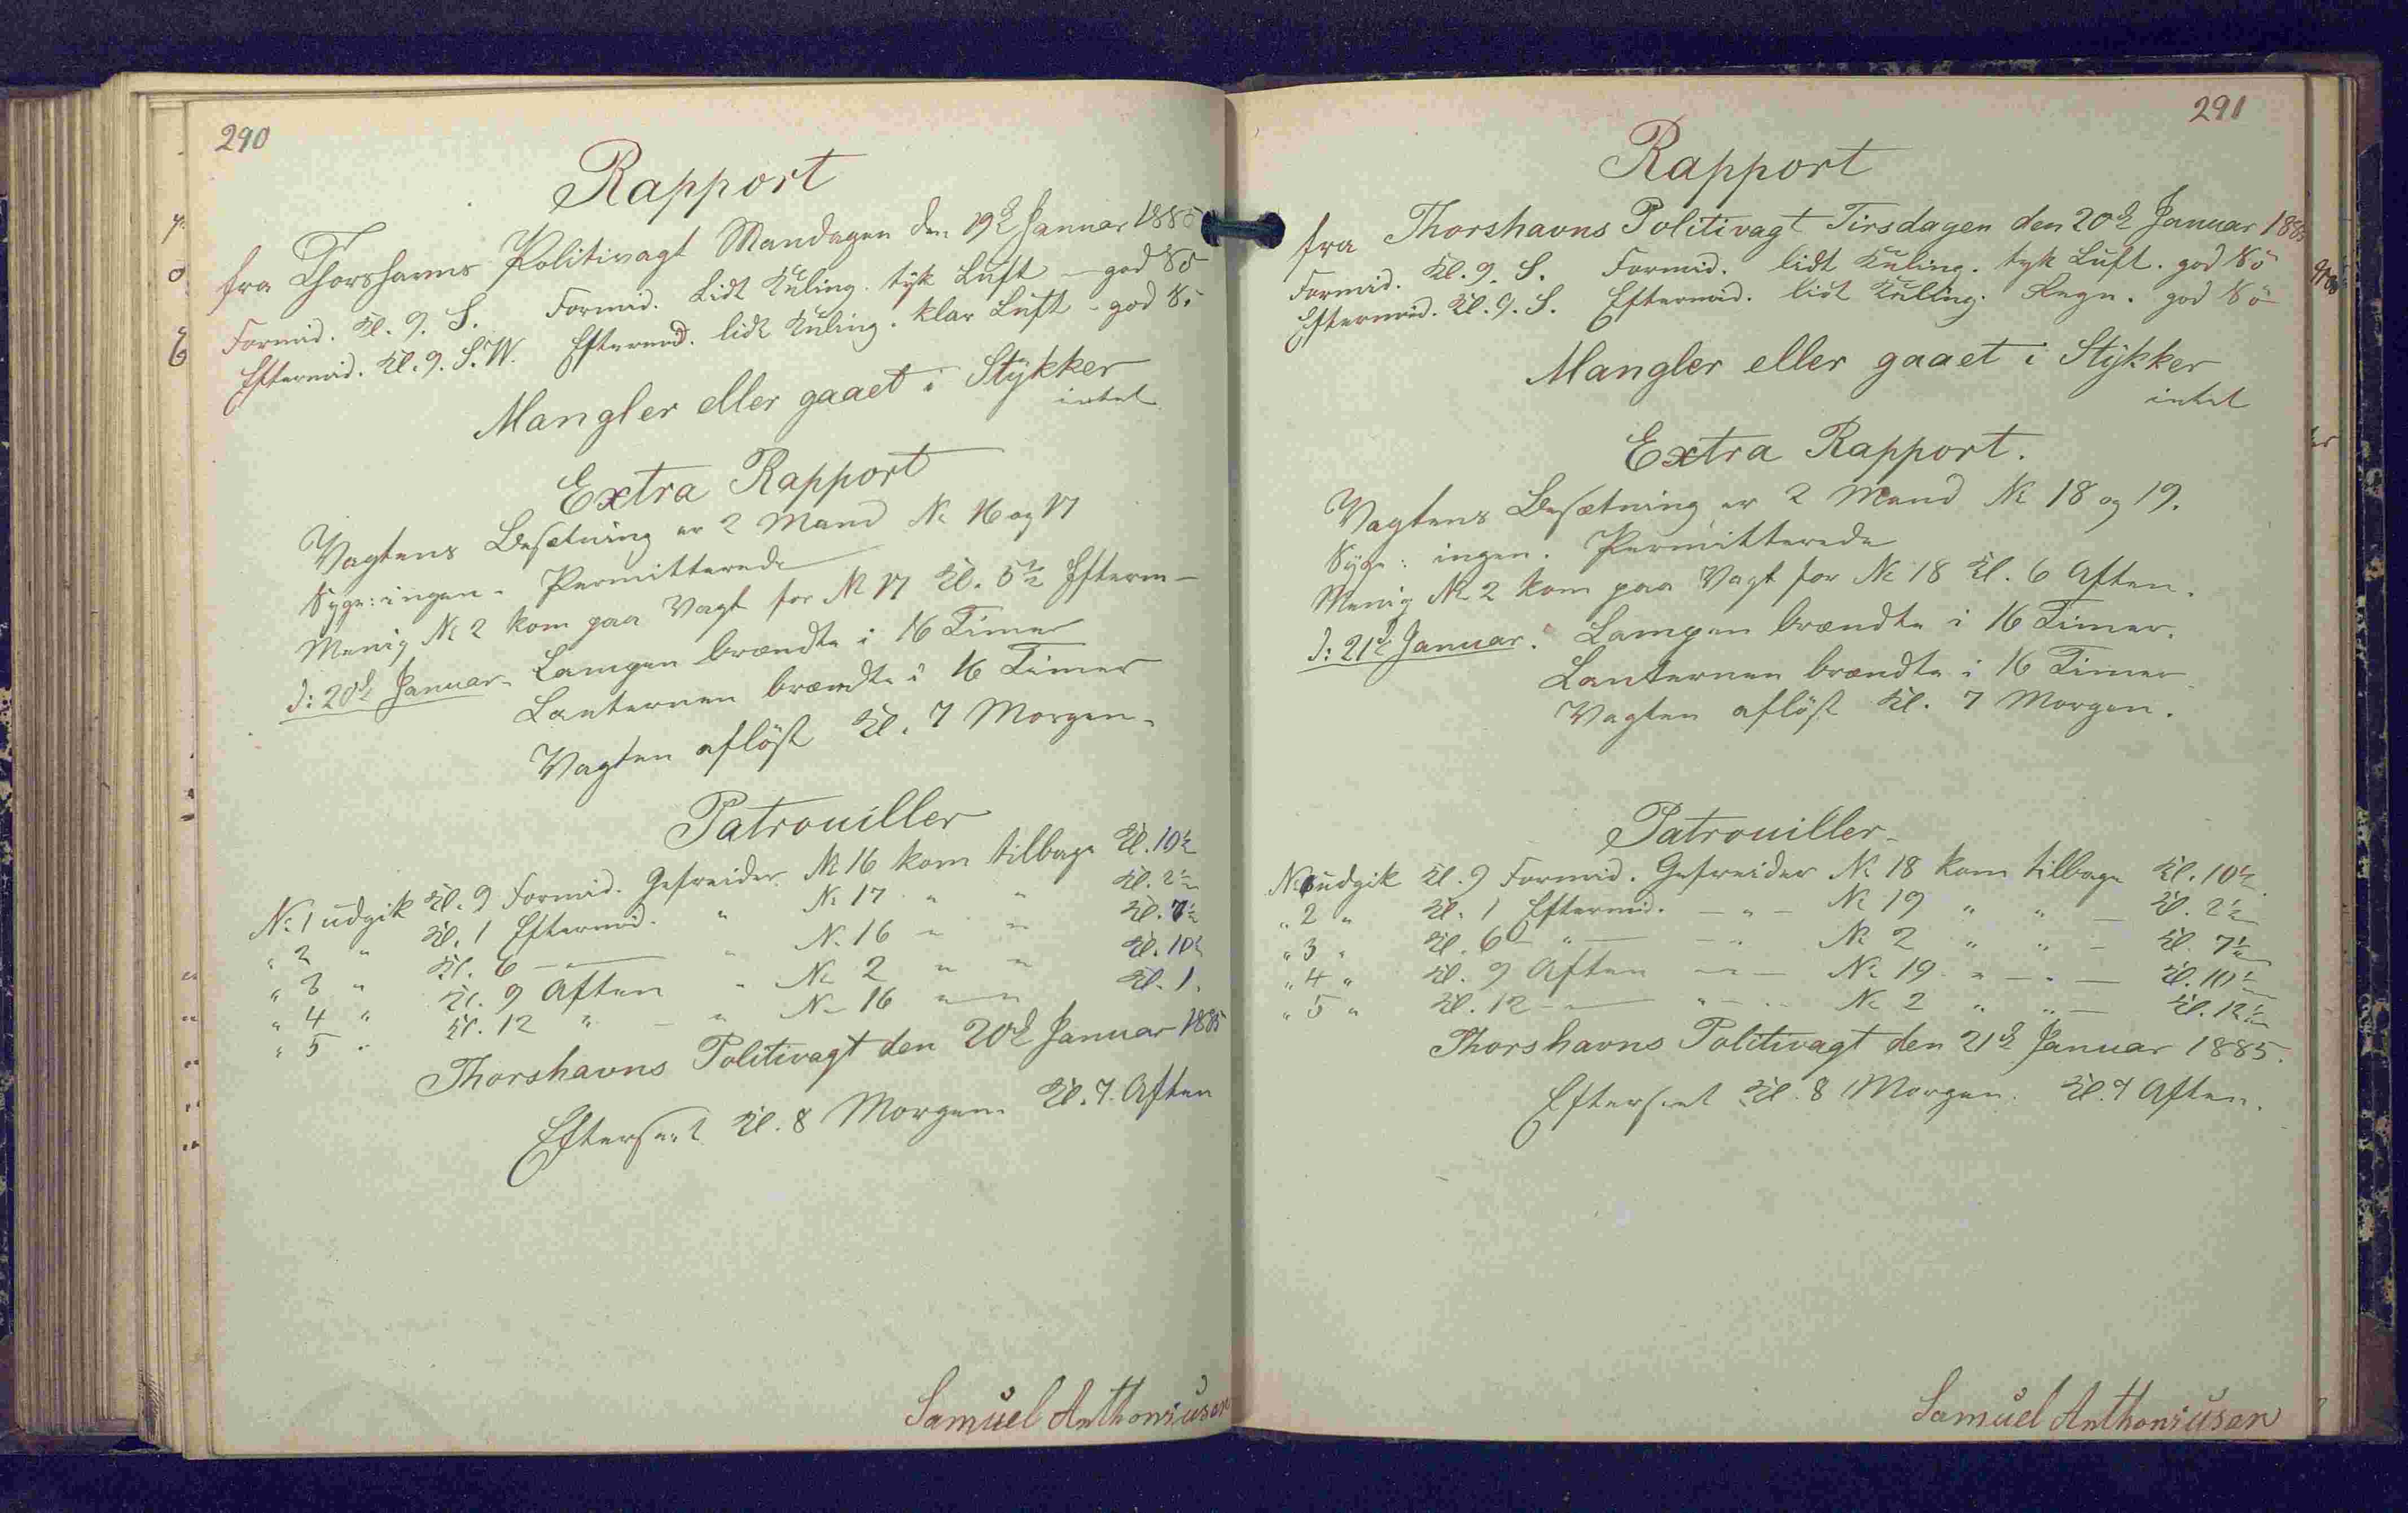 290
Rapport
fra Thorshavns Politivagt Mandagen den 19de Januar 1885
Formid. Kl. 9. S. Formid. Lidt Kuling. tyk Luft - god Sö
Eftermid. Kl. 9. S.W. Eftermid. lidt Kuling. klar Luft - god Sö
Mangler eller gaaet i Stykker
intet
Extra Rapport
Vagtens Besætning er 2 Mand No 16 og 17
Syge: ingen. Permitterede
Menig No 2 kom paa Vagt for No 17 Kl. 5½ Efterm
d: 20de Januar. Lampen brændte i 16 Timer
Lanternen brændte i 16 Timer
Vagten aflöst Kl. 7 Morgen.
Patrouiller
No 1 udgik Kl. 9 Formid. Gefreider No 16 kom tilbage Kl. 10½
" 2 " Kl. 1 Eftermid. " No 17 " " Kl. 2½
" 3 " Kl. 6 — " — " No 16 " " Kl. 7½
" 4 " Kl. 9 Aften " No 2 " " Kl. 10½
" 5 " Kl. 12 " — " No 16 " " Kl. 1.
Thorshavns Politivagt den 20de Januar 1885
Efterseet Kl. 8 Morgen. Kl. 7. Aften
Samuel Anthoniusen
291
Rapport
fra Thorshavns Politivagt Tirsdagen den 20de Januar 1885
Formid. Kl. 9. S. Formid. lidt Kuling. tyk Luft. god Sö
Eftermid. Kl. 9. S. Eftermid. lidt Kuling. Regn. god Sö
Mangler eller gaaet i Stykker
intet
Extra Rapport.
Vagtens Besætning er 2 Mand No 18 og 19.
Syge: ingen. Permitterede
Menig No 2 kom paa Vagt for No 18 Kl. 6 Aften.
d: 21de Januar. Lampen brændte i 16 Timer.
Lanternen brændte i 16 Timer
Vagten aflöst Kl. 7 Morgen.
Patrouiller
No 1 udgik Kl. 9 Formid. Gefreider No 18 kom tilbage Kl. 10½.
" 2 " Kl. 1 Eftermid. — " — No 19 " " — Kl. 2½
" 3 " Kl. 6 — " — — " No 2 " " — Kl. 7½
" 4 " Kl. 9 Aften — " — No 19 " — " — Kl. 10½
" 5 " Kl. 12 — " — " No 2 " " — Kl. 12½
Thorshavns Politivagt den 21de Januar 1885.
Efterseet Kl. 8 Morgen. Kl. 7 Aften.
Samuel Anthoniusen